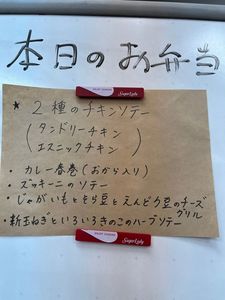 本日のお弁当
SugarLady
★ 2種のチキンソテー
(タンドリーチキン
エスニックチキン)
・カレー春巻(おから入り)
・ズッキーニのソテー
・じゃがいもとそら豆とえんどう豆のチーズ
グリル
・新玉ねぎといろいろきのこのハーブソテー
SugarLady